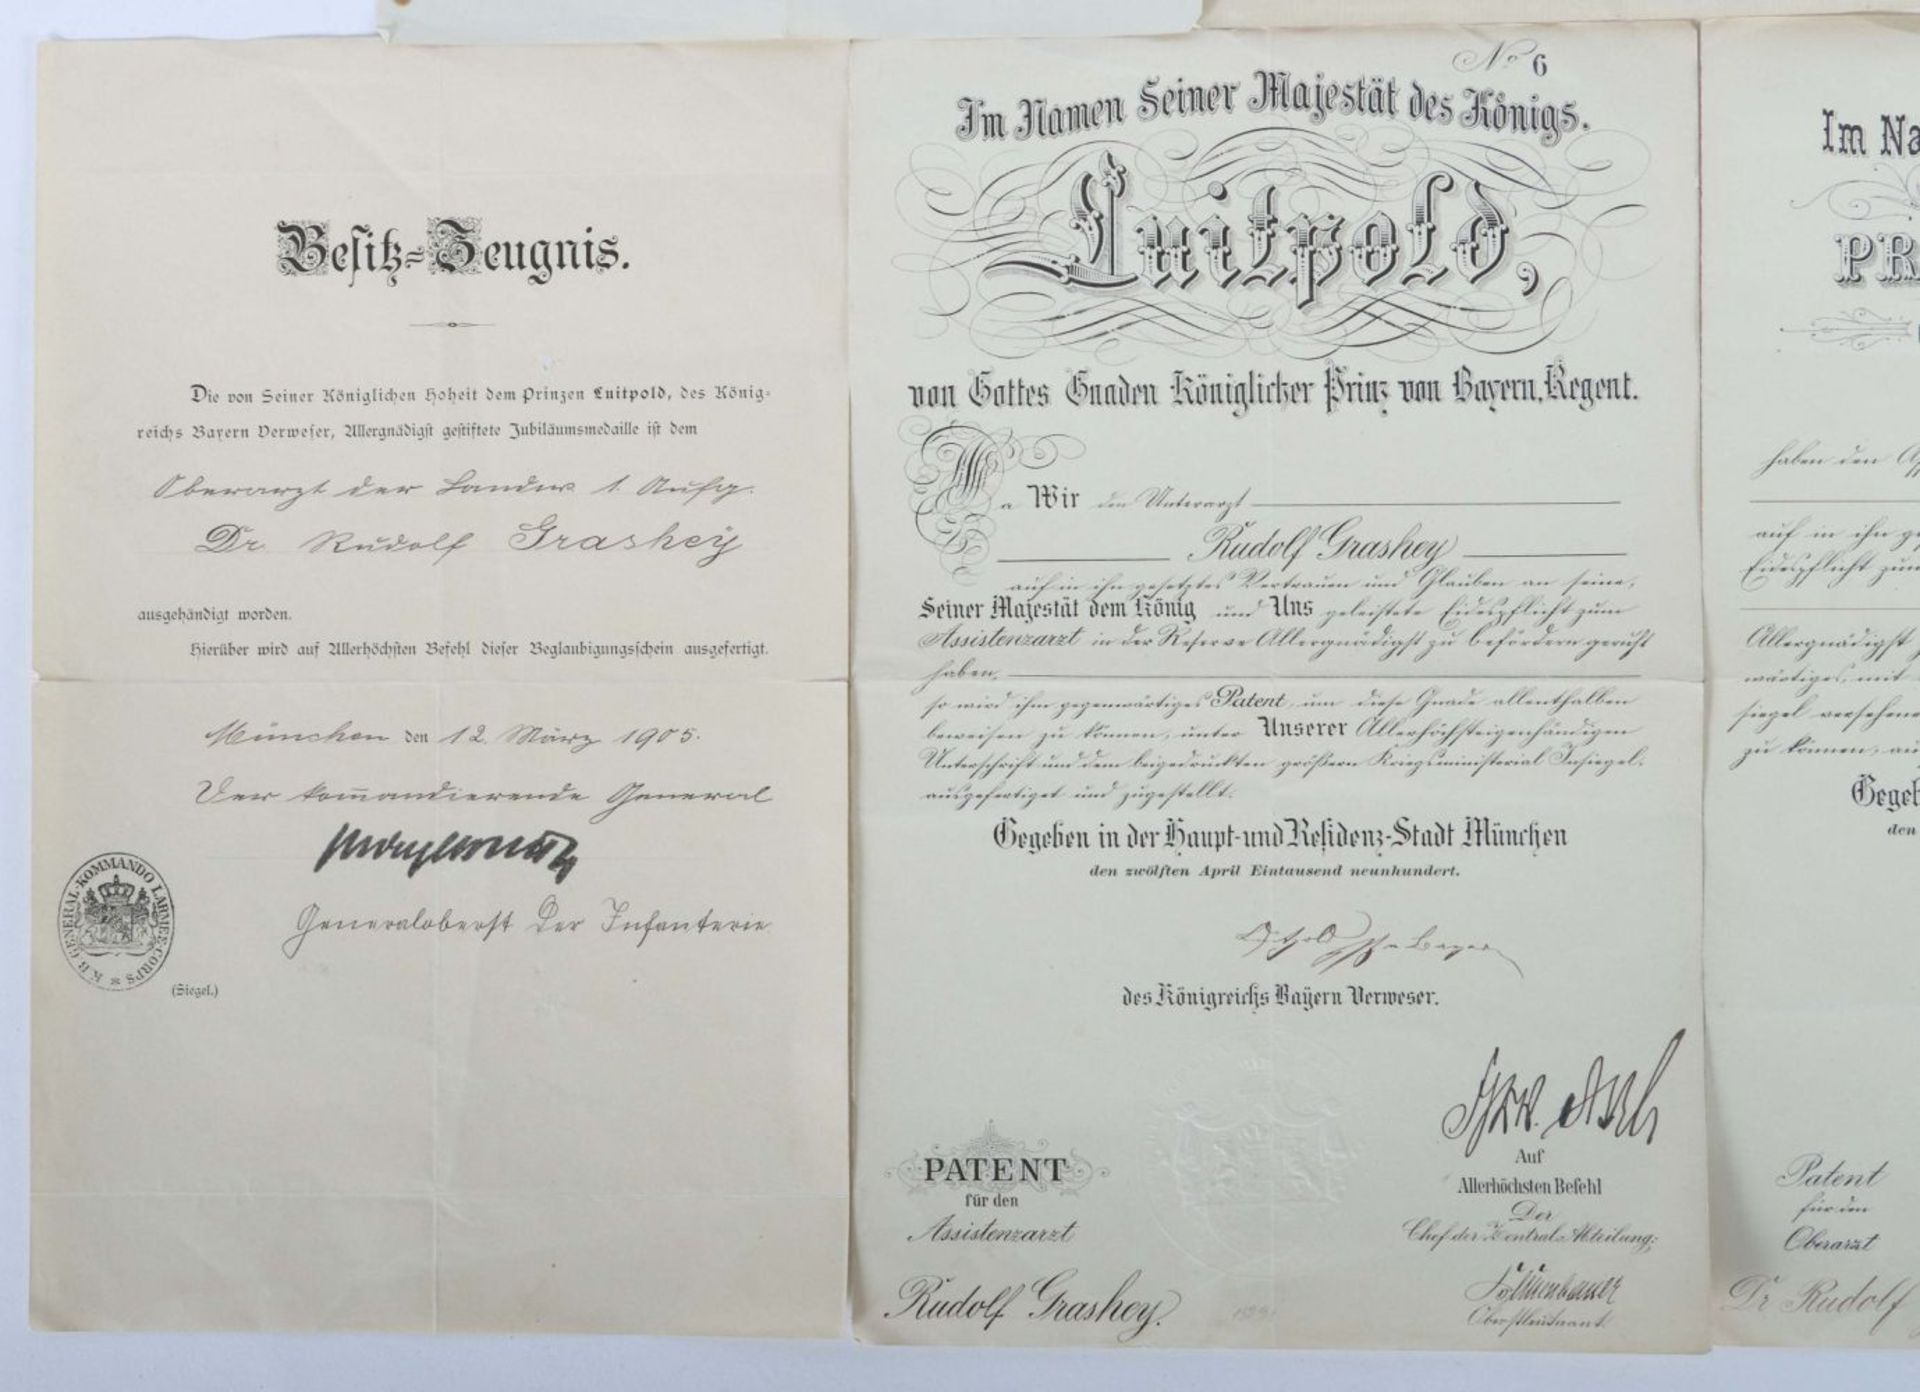 Besitz-Zeugnis.
Die von Seiner Königlichen Hoheit dem Prinzen Luitpold, des König-
reichs Bayern Verweser, Allergnädigst gestiftete Jubiläumsmedaille ist dem
Oberarzt der Landw. 1. Aufg.
Dr. Rudolf Grashey
ausgehändigt worden.
Hierüber wird auf Allerhöchsten Befehl dieser Beglaubigungsschein ausgefertigt.
München den 12. März 1905.
Der kommandierende General
Generaloberst der Infanterie
K.B. GENERAL-KOMMANDO I. ARMEE-CORPS *
(Siegel.)
No 6
Im Namen Seiner Majestät des Königs.
Luitpold,
von Gottes Gnaden Königlicher Prinz von Bayern, Regent.
Da Wir den Unterarzt
Rudolf Grashey
auf in ihn gesetztes Vertrauen und Glauben an seine,
Seiner Majestät dem König und Uns geleistete Eidespflicht zum
Assistenzarzt in der Reserve Allergnädigst zu befördern geruht
haben,
so wird ihm gegenwärtiges Patent, um diese Gnade allenthalben
beweisen zu können, unter Unserer Allerhöchsteigenhändigen
Unterschrift und dem beigedruckten größern Kriegsministerial Insiegel
ausgefertiget und zugestellt.
Gegeben in der Haupt- und Residenz-Stadt München
den zwölften April Eintausend neunhundert.
des Königreichs Bayern Verweser.
PATENT
für den
Assistenzarzt
Rudolf Grashey.
Auf
Allerhöchsten Befehl
Der
Chef der Zentral-Abteilung:
Oberstleutnant
Im Na
PR
haben den
auf in ihn
Eidespflicht zum
Allergnädigst
wärtiges, mit
siegel versehene
zu können,
Gegeb
den
Patent
für den
Oberarzt
Dr. Rudolf